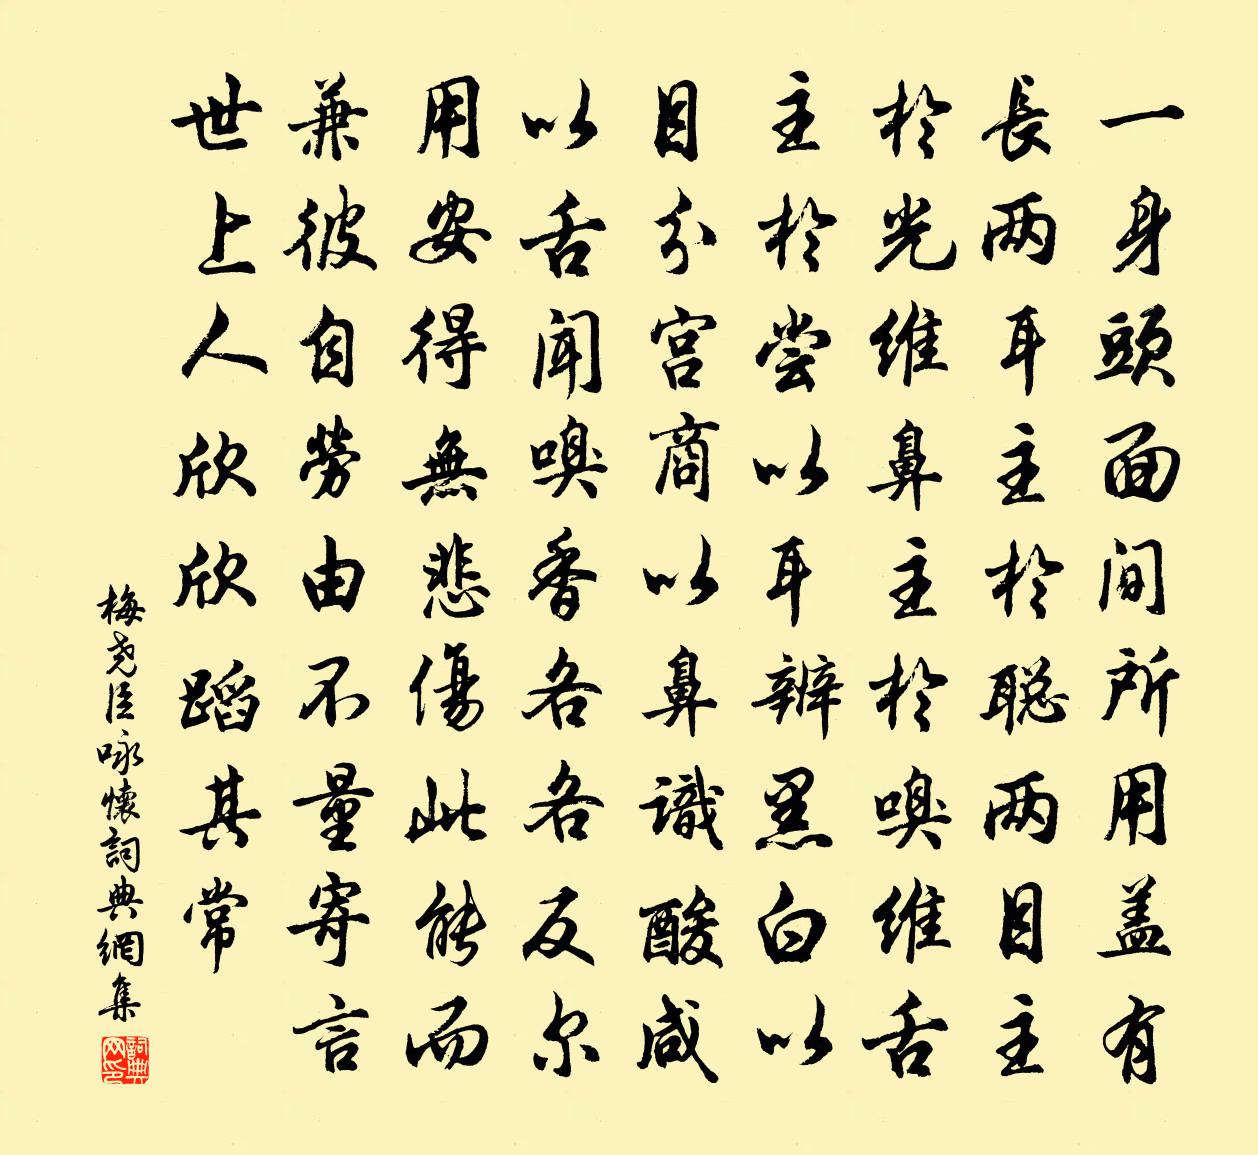 一身頭面间所用盖有
長两耳主於聪两目主
於光維鼻主於嗅維舌
主於尝以耳辨黑白以
目分宫商以鼻識酸咸
以舌闻嗅香各各反尔
用安得無悲傷此能而
兼彼自勞由不量寄言
世上人欣欣蹈其常
梅尧臣咏懷詞典網集
詞典网印